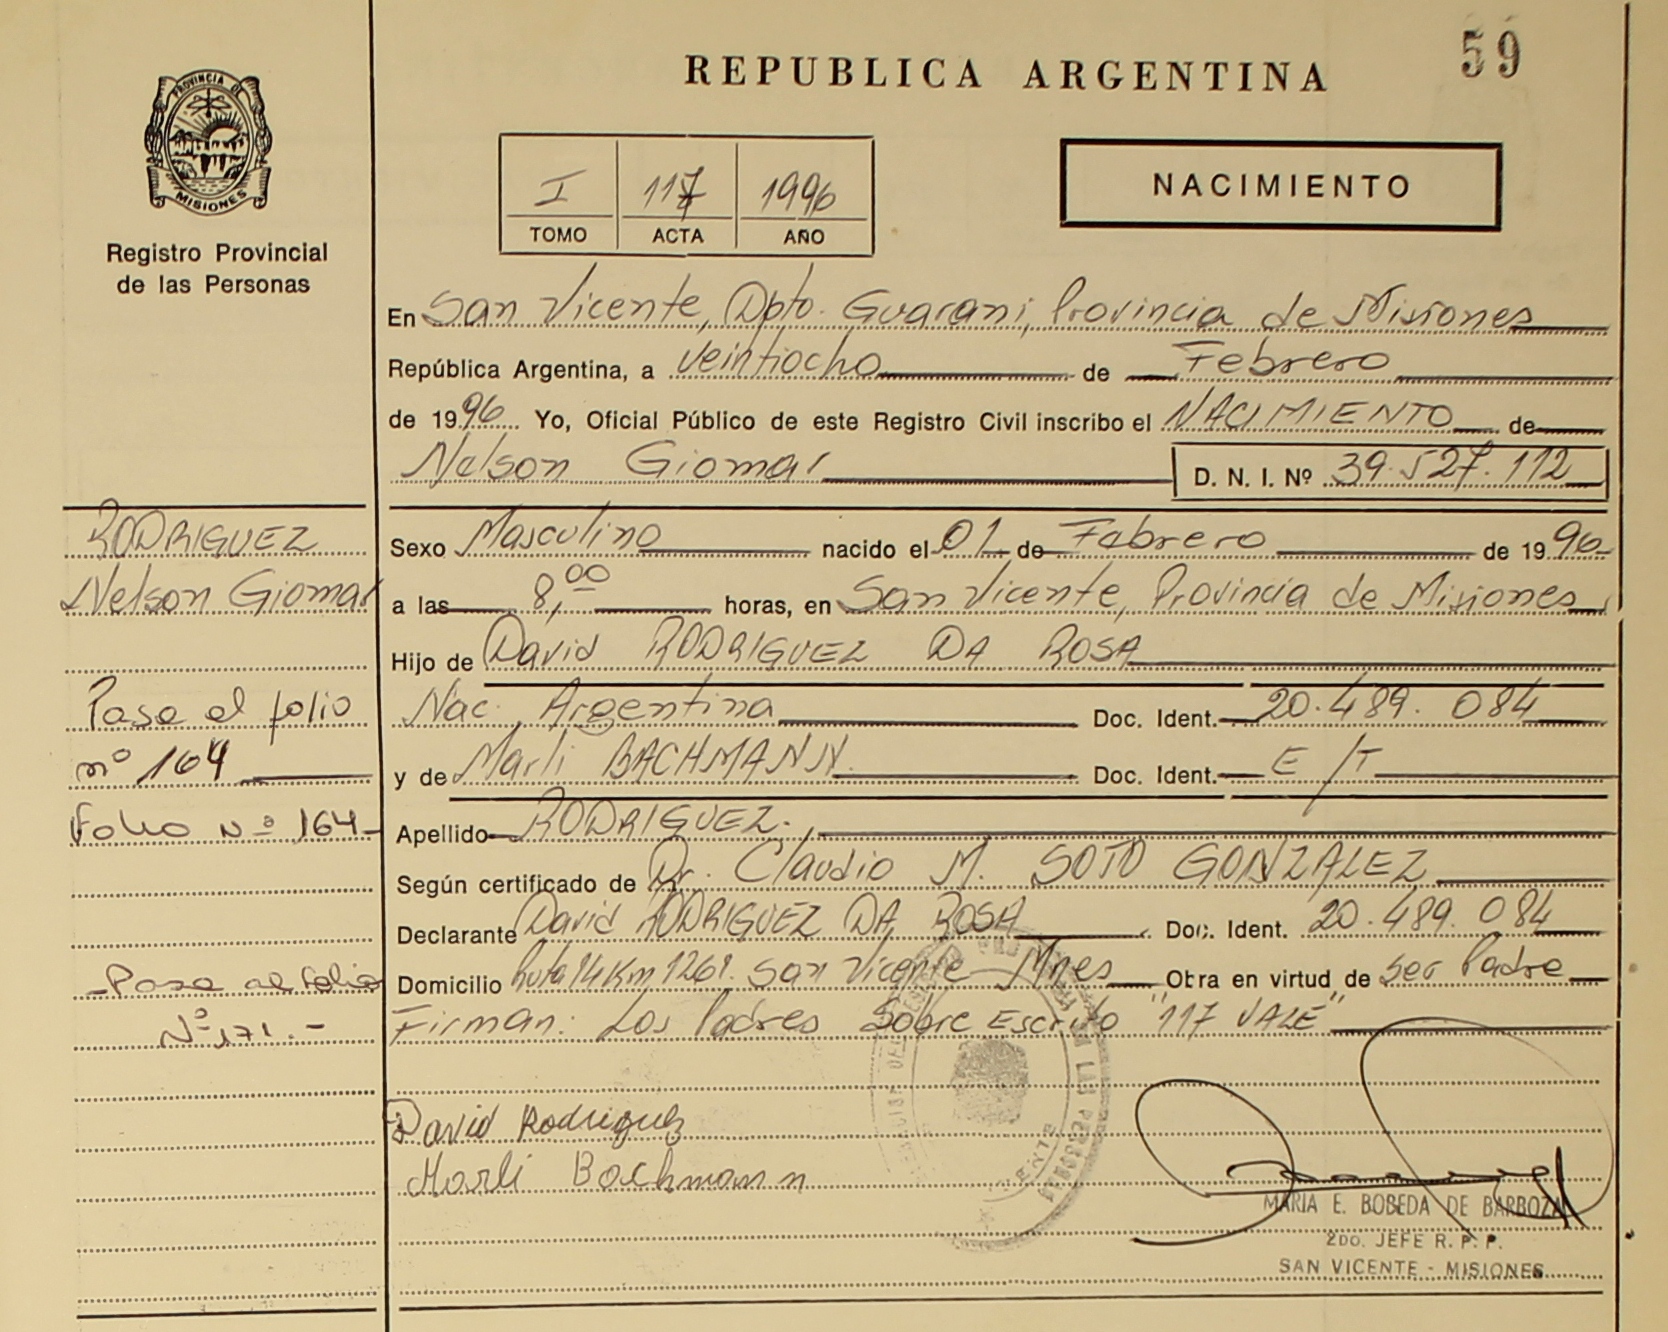 59
REPUBLICA ARGENTINA
PROVINCIA DE
MISIONES
Registro Provincial
de las Personas
I 117 1996
TOMO ACTA AÑO
NACIMIENTO
En San Vicente, Dpto. Guarani, Provincia de Misiones
República Argentina, a veintiocho de Febrero
de 1996 Yo, Oficial Público de este Registro Civil inscribo el NACIMIENTO de
Nelson Giomar D. N. I. Nº 39.527.112
RODRIGUEZ
Nelson Giomar
Pase al folio
nº 164
Folio Nº 164
Pase al folio
Nº 171.-
Sexo Masculino nacido el 01 de Febrero de 1996
a las 8,00 horas, en San Vicente, Provincia de Misiones
Hijo de David RODRIGUEZ DA ROSA
Nac. Argentina Doc. Ident. 20.489.084
y de Marli BACHMANN Doc. Ident. E/T
Apellido RODRIGUEZ.
Según certificado de Dr. Claudio M. SOTO GONZALEZ
Declarante David RODRIGUEZ DA ROSA Doc. Ident. 20.489.084
Domicilio Ruta 14 Km 1261. San Vicente Mnes Obra en virtud de ser Padre
Firman: Los Padres Sobre Escrito "117 VALE"
David Rodriguez
Marli Bachmann
MARIA E. BOBEDA DE BARBOZA
2DO. JEFE R. P. P.
SAN VICENTE - MISIONES